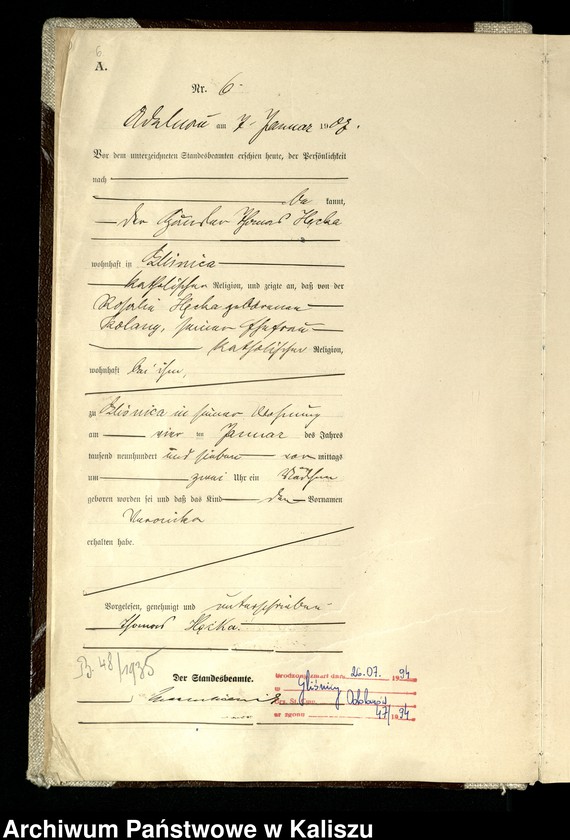 6
A.
Nr. 6
Adelnau am 7. Januar 1907.
Vor dem unterzeichneten Standesbeamten erschien heute, der Persönlichkeit
nach
be kannt,
der Häusler Thomas Hęcka
wohnhaft in Glisnica
katholischer Religion, und zeigte an, daß von der
Rosalie Hęcka geborenen
Kolany, seiner Ehefrau
katholischer Religion,
wohnhaft bei ihm,
zu Glisnica in seiner Wohnung
am vier ten Januar des Jahres
tausend neunhundert und sieben vor mittags
um zwei Uhr ein Mädchen
geboren worden sei und daß das Kind den Vornamen
Veronika
erhalten habe.
Vorgelesen, genehmigt und unterschrieben
Thomas Hęcka.
B. 48/1935
Der Standesbeamte.
Urodzony zmarł dnia 26.07. 1994
w Gliśnicy
Urz. St. Cyw. Odolanów
nr zgonu 47/1994
Archiwum Państwowe w Kaliszu